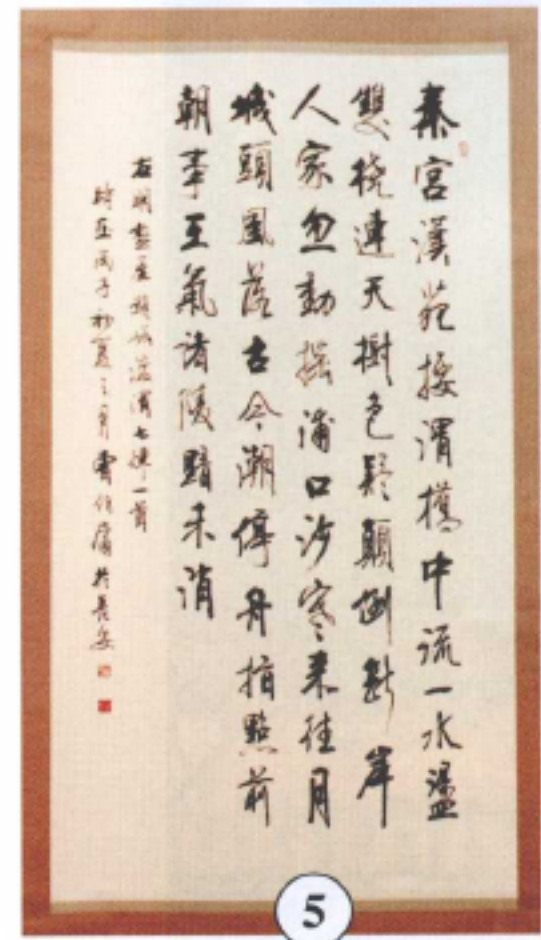 秦宮漢苑接渭橋中流一水盪
雙橈連天樹色疑顛倒斷岸
人家忽動搖浦口沙寒來往月
城頭風落古今潮停舟指點前
朝事王氣諸陵黯未消
右明盩厔趙崡泛渭七律一首
時在丙子初夏之月曹伯庸於長安
5